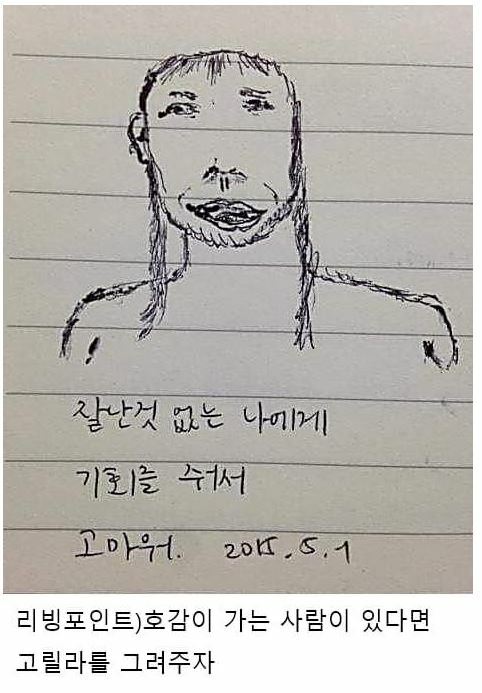 잘난것 없는 나에게
기회를 줘서
고마워. 2015.5.1
리빙포인트)호감이 가는 사람이 있다면
고릴라를 그려주자